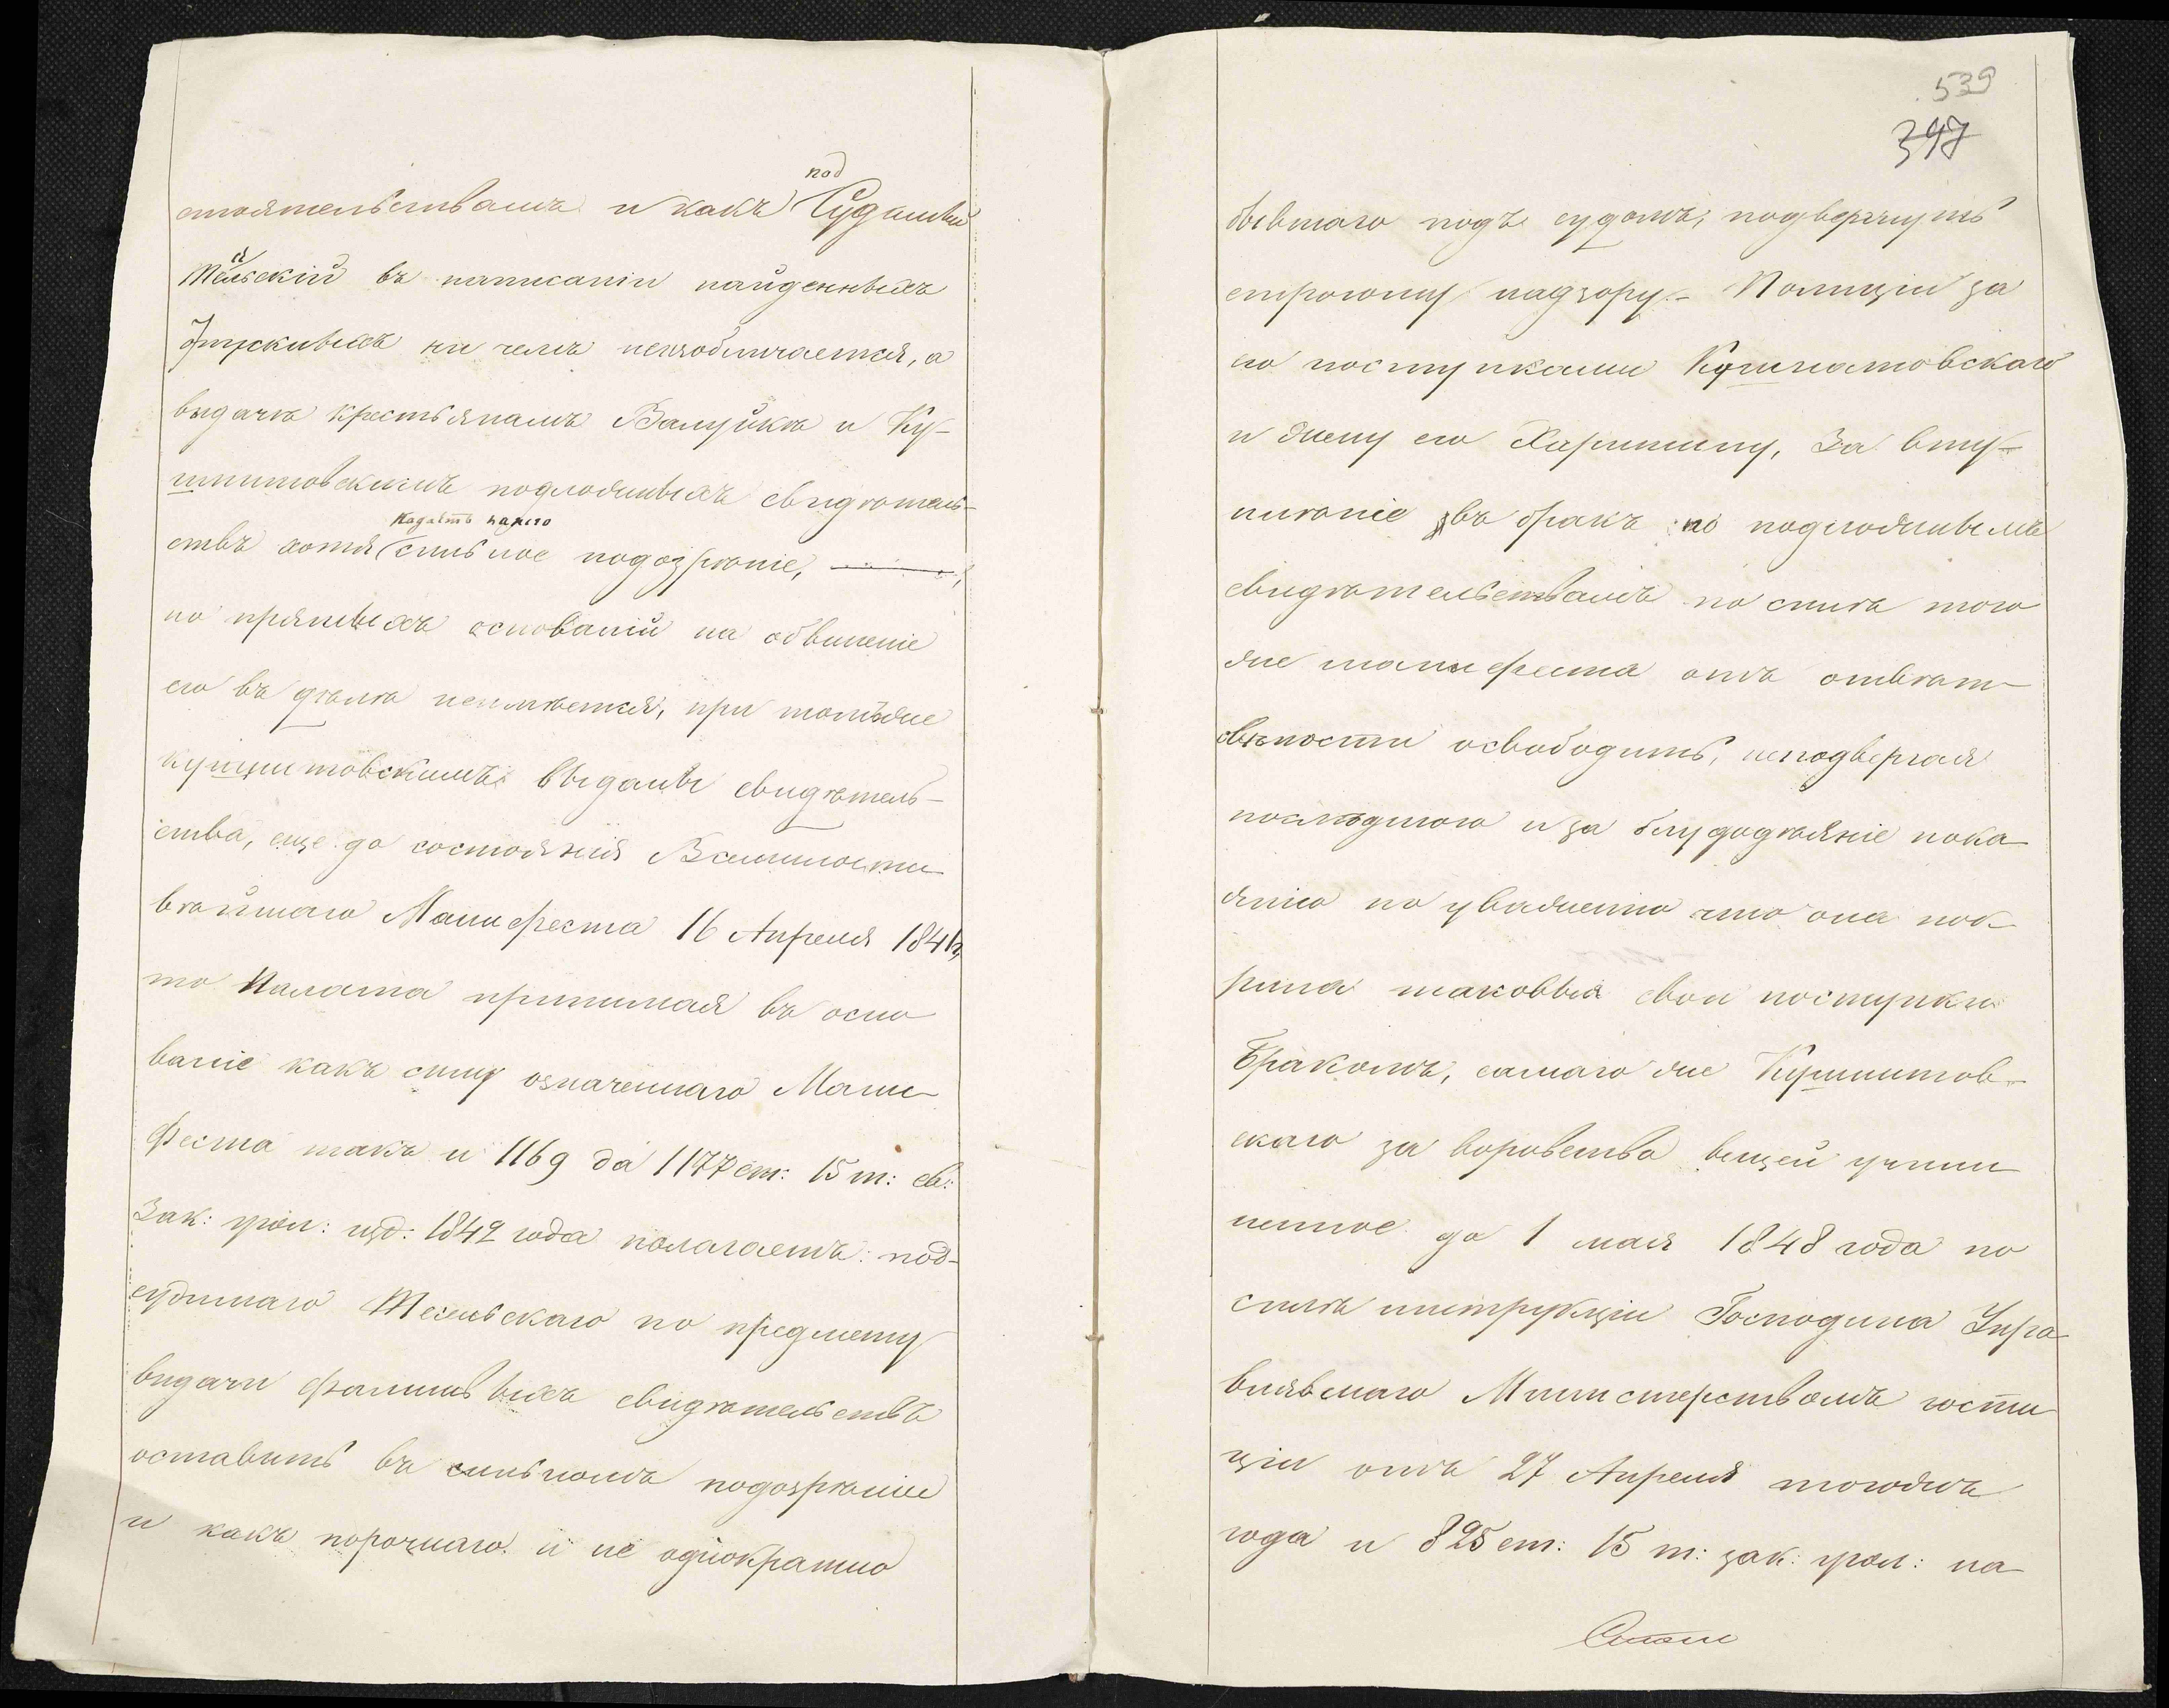 под
стоятельствамъ и какъ Судимый
Тесельскій въ написаніи найденныхъ
ни чемъ неизобличается, а
выдача крестьянамъ Валуйкѣ и Ку-
шнитовскимъ подложныхъ свидѣтель-
Падаетъ на него
ствъ хотя сильное подозрѣніе,
но прямыхъ основаній на обвиненіе
его въ дѣлѣ неимѣется, при томъ же
Кушнитовскимъ выданы свидѣтель-
ства, еще до состоянія Всемилости
вѣйшаго Манифеста 16 Апреля 1841 г,
то Палата принимая въ осно
ваніе какъ силу означеннаго Мани
феста такъ и 1169 да 1177 ст: 15 т: св:
Зак: угол: изд: 1842 года полагаетъ: под-
судимаго Тесельскаго по предмету
видачи фальшивыхъ свидѣтельствъ
оставить въ сильномъ подозрѣніи
и какъ порочнаго и не однократно
539
347
бывшаго подъ судомъ, подвергнуть
строгому надзору Полиціи за
его поступками Кушнитовскаго
и жену его Харитину, за всту-
пленіе въ бракъ по подложнымъ
свидѣтельствамъ по силѣ того
же манифеста отъ отвѣтст
вѣнности освободить, неподвергая
последнюю и за блудодѣяніе пока
янію по уваженію что она пок
рила таковыя свои поступки
Бракомъ, самаго же Кушнитов-
скаго за воровство вещей учини
ненное до 1 мая 1848 года по
силѣ инструкціи Господина Упра
влявшаго Министерствомъ юсти
ціи отъ 27 Апреля тогожъ
года и 825 ст: 15 т: зак: угол: на